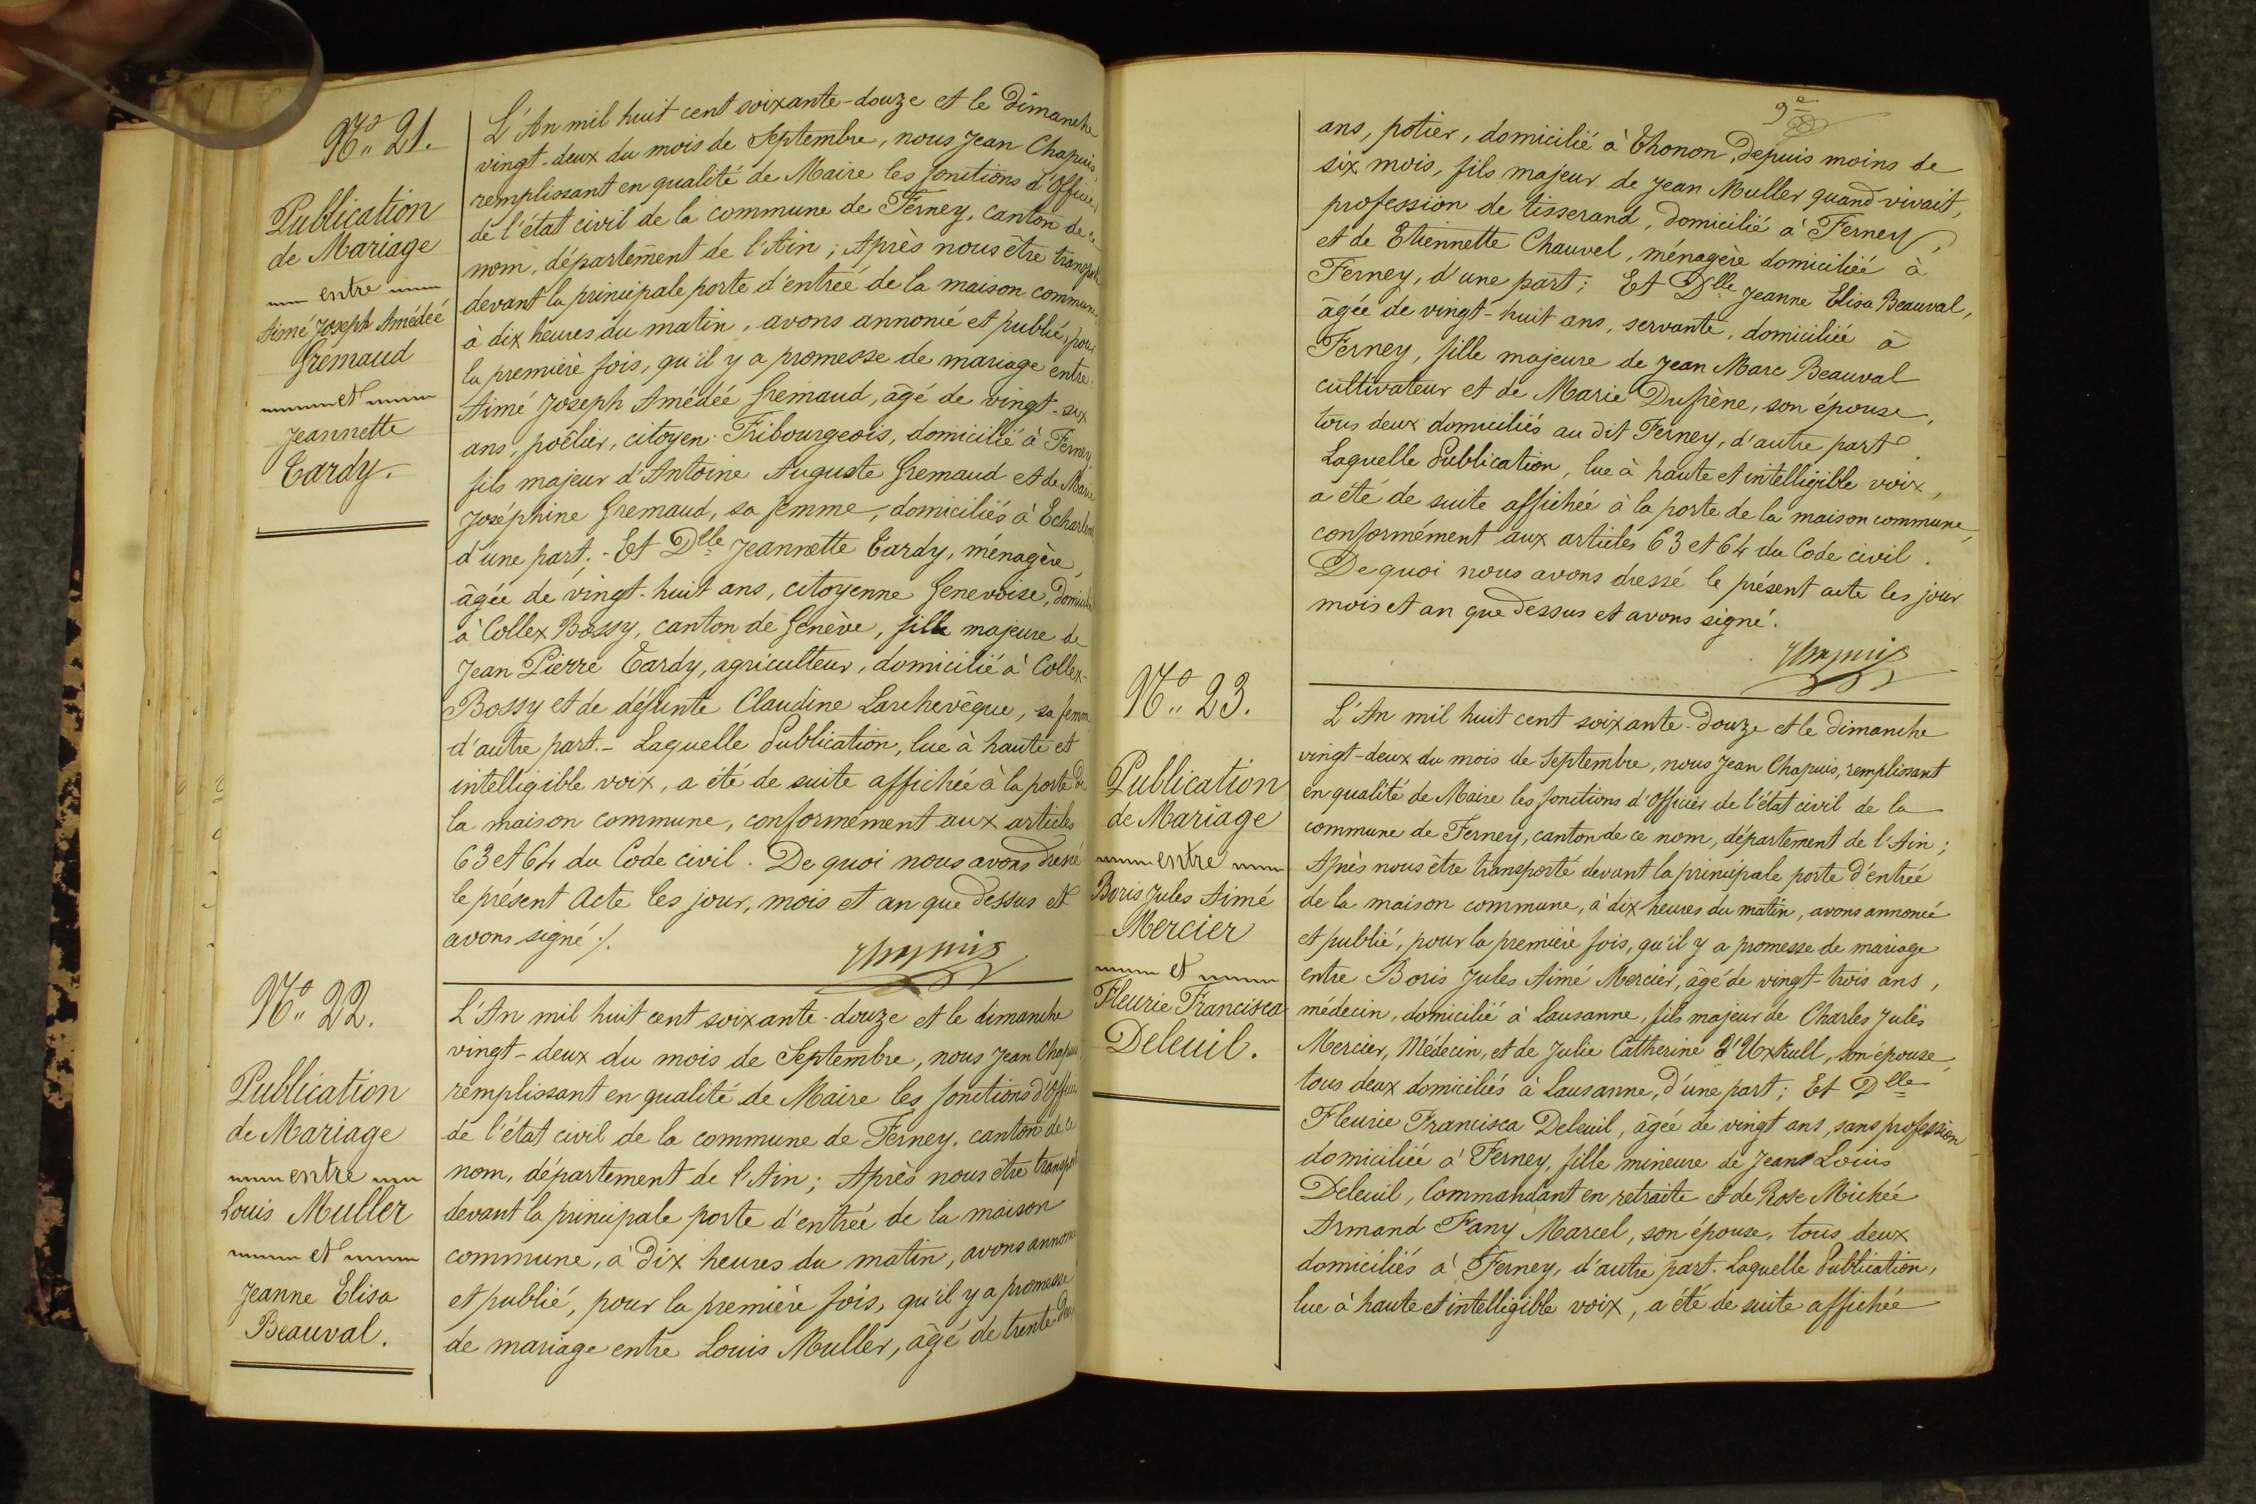 No 21.
Publication
de Mariage
entre
Aimé Joseph Amédéé
Gremaud
et
Jeannette
Tardy.
L'An mil huit cent soixante-douze et le Dimanche
vingt-deux du mois de Septembre, nous Jean Chapuis,
remplissant en qualité de Maire les fonctions d'Officier
de l'état civil de la commune de Ferney, canton de ce
nom, département de l'Ain ; Après nous être transporté
devant la principale porte d'entréé de la maison commune,
à dix heures du matin, avons annoncé et publié, pour
la première fois, qu'il y a promesse de mariage entre
Aimé Joseph Amédéé Gremaud, âgé de vingt-six
ans, poëlier, citoyen Fribourgeois, domicilié à Ferney,
fils majeur d'Antoine Auguste Gremaud et de Marie
Joséphine Gremaud, sa femme, domiciliés à
d'une part. - Et Dlle Jeannette Tardy, ménagère,
âgée de vingt-huit ans, citoyenne Genevoise,
à Collex Bossy, canton de Genève, fille majeure de
Jean Pierre Tardy, agriculteur, domicilié à Collex-
Bossy et de défunte Claudine Larchevêque, sa femme
d'autre part. - Laquelle Publication, lue à haute et
intelligible voix, a été de suite affichée à la porte de
la maison commune, conformément aux articles
63 et 64 du Code civil. De quoi nous avons dressé
le présent Acte les jour, mois et an que dessus et
avons signé ./.
Chapuis
No 22.
Publication
de Mariage
entre
Louis Muller
et
Jeanne Elisa
Beauval.
L'An mil huit cent soixante-douze et le dimanche
vingt-deux du mois de Septembre, nous Jean Chapuis
remplissant en qualité de Maire les fonctions d'Officier
de l'état civil de la commune de Ferney, canton de ce
nom, département de l'Ain ; Après nous être transporté
devant la principale porte d'entréé de la maison
commune, à dix heures du matin, avons annoncé
et publié, pour la première fois, qu'il y a promesse
de mariage entre Louis Muller, âgé de trente deux
9e
ans, potier, domicilié à Thonon, depuis moins de
six mois, fils majeur de Jean Muller quand vivait,
profession de tisserand, domicilié à Ferney,
et de Etiennette Chauvel, ménagère domiciliéé à
Ferney, d'une part ; Et Dlle Jeanne Elisa Beauval,
âgée de vingt-huit ans, servante, domiciliéé à
Ferney, fille majeure de Jean Marc Beauval
cultivateur et de Marie Dufrène, son épouse,
tous deux domiciliés au dit Ferney, d'autre part.
Laquelle Publication, lue à haute et intelligible voix,
a été de suite affichéé à la porte de la maison commune,
conformément aux articles 63 et 64 du Code civil.
De quoi nous avons dressé le présent acte les jour
mois et an que dessus et avons signé.
Chapuis
No 23.
Publication
de Mariage
entre
Boris Jules Aimé
Mercier
et
Fleurie Francisca
Deleuil.
L'An mil huit cent soixante-douze et le dimanche
vingt-deux du mois de Septembre, nous Jean Chapuis, remplissant
en qualité de Maire les fonctions d'Officier de l'état civil de la
commune de Ferney, canton de ce nom, département de l'Ain ;
Après nous être transporté devant la principale porte d'entréé
de la maison commune, à dix heures du matin, avons annoncé
et publié, pour la première fois, qu'il y a promesse de mariage
entre Boris Jules Aimé Mercier, âgé de vingt-trois ans,
médecin, domicilié à Lausanne, fils majeur de Charles Jules
Mercier, Médecin, et de Julie Catherine d'Uxkull, son épouse,
tous deux domiciliés à Lausanne, d'une part ; Et Dlle
Fleurie Francisca Deleuil, âgée de vingt ans, sans profession
domiciliéé à Ferney, fille mineure de Jean Louis
Deleuil, Commandant en retraite et de Rose Michéé
Armand Fany Marcel, son épouse, tous deux
domiciliés à Ferney, d'autre part. Laquelle Publication,
lue à haute et intelligible voix, a été de suite affichée